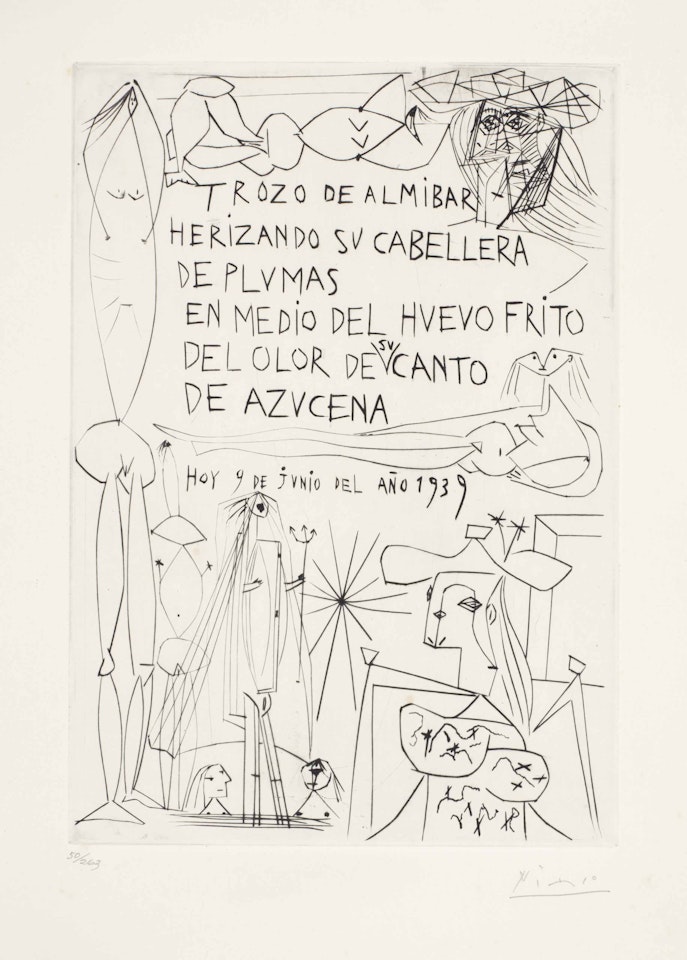 TROZO DE ALMIBAR
HERIZANDO SV CABELLERA
DE PLVMAS
EN MEDIO DEL HVEVO FRITO
DEL OLOR DE SV CANTO
DE AZVCENA
HOY 9 DE JVNIO DEL AÑO 1939
50/243
Picasso